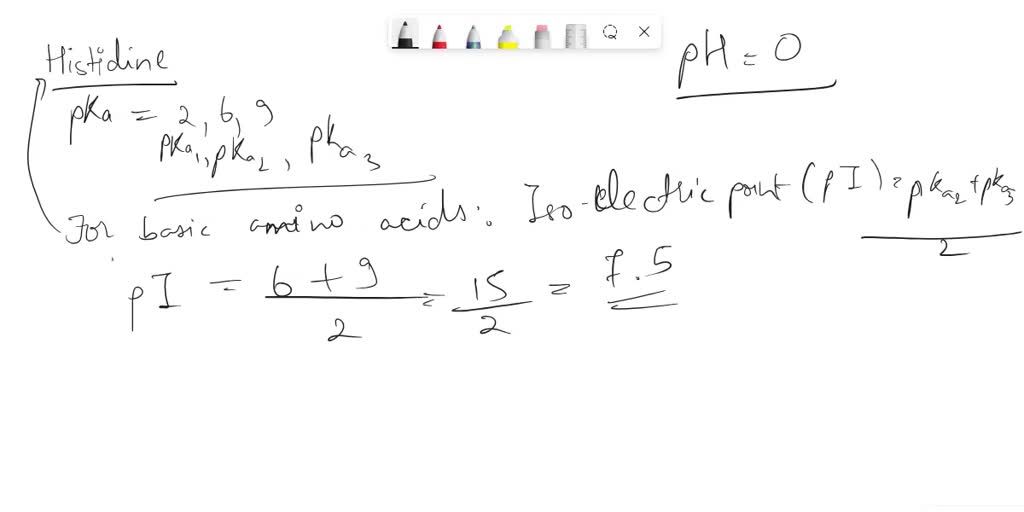 Histidine
pH = 0
pKa = 2, 6, 9
pKa1, pKa2, pKa3
For basic amino acids: Iso-electric point (pI) = pKa2 + pKa3 / 2
pI = 6 + 9 / 2 = 15 / 2 = 7.5